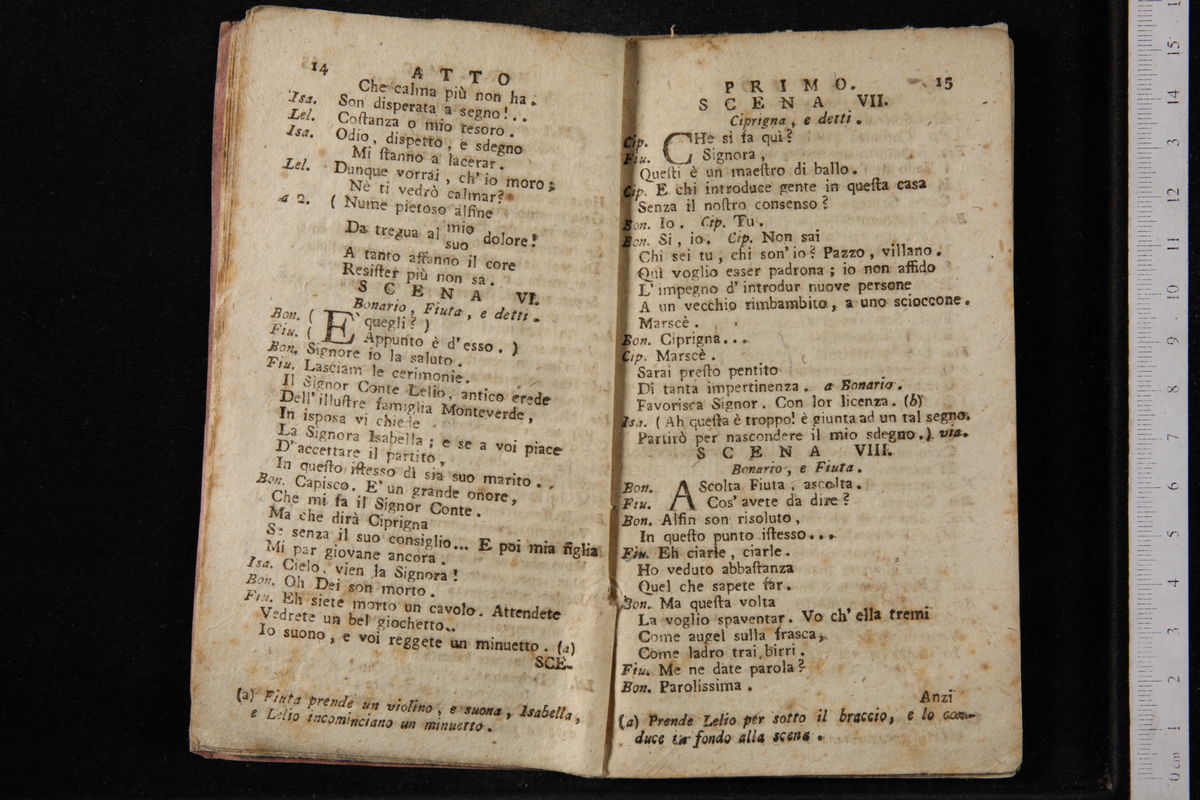 14 ATTO
Che calma più non ha.
Isa. Son disperata a segno!..
Lel. Coſtanza o mio tesoro.
Isa. Odio, dispetto, e sdegno
Mi ſtanno a lacerar.
Lel. Dunque vorrai, ch'io moro;
Nè ti vedrò calmar?
a 2. ( Nume pietoso alfine
Da tregua al mio dolore!
suo
A tanto affanno il core
Resiſter più non sa.
SCENA VI.
Bonario, Fiuta, e detti.
Bon. ( E' quegli? )
Fiu. ( Appunto è d'esso. )
Bon. Signore io la saluto.
Fiu. Lasciam le cerimonie.
Il Signor Conte Lelio, antico erede
Dell'illuſtre famiglia Monteverde,
In isposa vi chiede
La Signora Isabella; e se a voi piace
D'accettare il partito,
In queſto iſtesso dì sia suo marito..
Bon. Capisco. E' un grande onore,
Che mi fa il Signor Conte.
Ma che dirà Ciprigna
Se senza il suo consiglio... E poi mia figlia
Mi par giovane ancora.
Isa. Cielo, vien la Signora!
Bon. Oh Dei son morto.
Fiu. Eh siete morto un cavolo. Attendete
Vedrete un bel giochetto..
Io suono, e voi reggete un minuetto. (a)
SCE-
(a) Fiuta prende un violino, e suona, Isabella,
e Lelio incominciano un minuetto.
PRIMO. 15
SCENA VII.
Ciprigna, e detti.
Cip. CHe si fa quì?
Fiu. Signora,
Queſti è un maeſtro di ballo.
Cip. E chi introduce gente in queſta casa
Senza il noſtro consenso?
Bon. Io. Cip. Tu.
Bon. Si, io. Cip. Non sai
Chi sei tu, chi son'io? Pazzo, villano.
Quì voglio esser padrona; io non affido
L'impegno d'introdur nuove persone
A un vecchio rimbambito, a uno scioccone.
Marscè.
Bon. Ciprigna...
Cip. Marscè.
Sarai preſto pentito
Di tanta impertinenza. a Bonario.
Favorisca Signor. Con lor licenza. (b)
Isa. ( Ah queſta è troppo! è giunta ad un tal segno.
Partirò per nascondere il mio sdegno.) via.
SCENA VIII.
Bonario, e Fiuta.
Bon. AScolta Fiuta, ascolta.
Fiu. Cos'avete da dire?
Bon. Alfin son risoluto,
In queſto punto iſtesso...
Fiu. Eh ciarle, ciarle.
Ho veduto abbaſtanza
Quel che sapete far.
Bon. Ma queſta volta
La voglio spaventar. Vo ch'ella tremi
Come augel sulla frasca,
Come ladro trai birri.
Fiu. Me ne date parola?
Bon. Parolissima.
Anzi
(a) Prende Lelio per sotto il braccio, e lo con-
duce in fondo alla scena.
0 cm 1 2 3 4 5 6 7 8 9 10 11 12 13 14 15